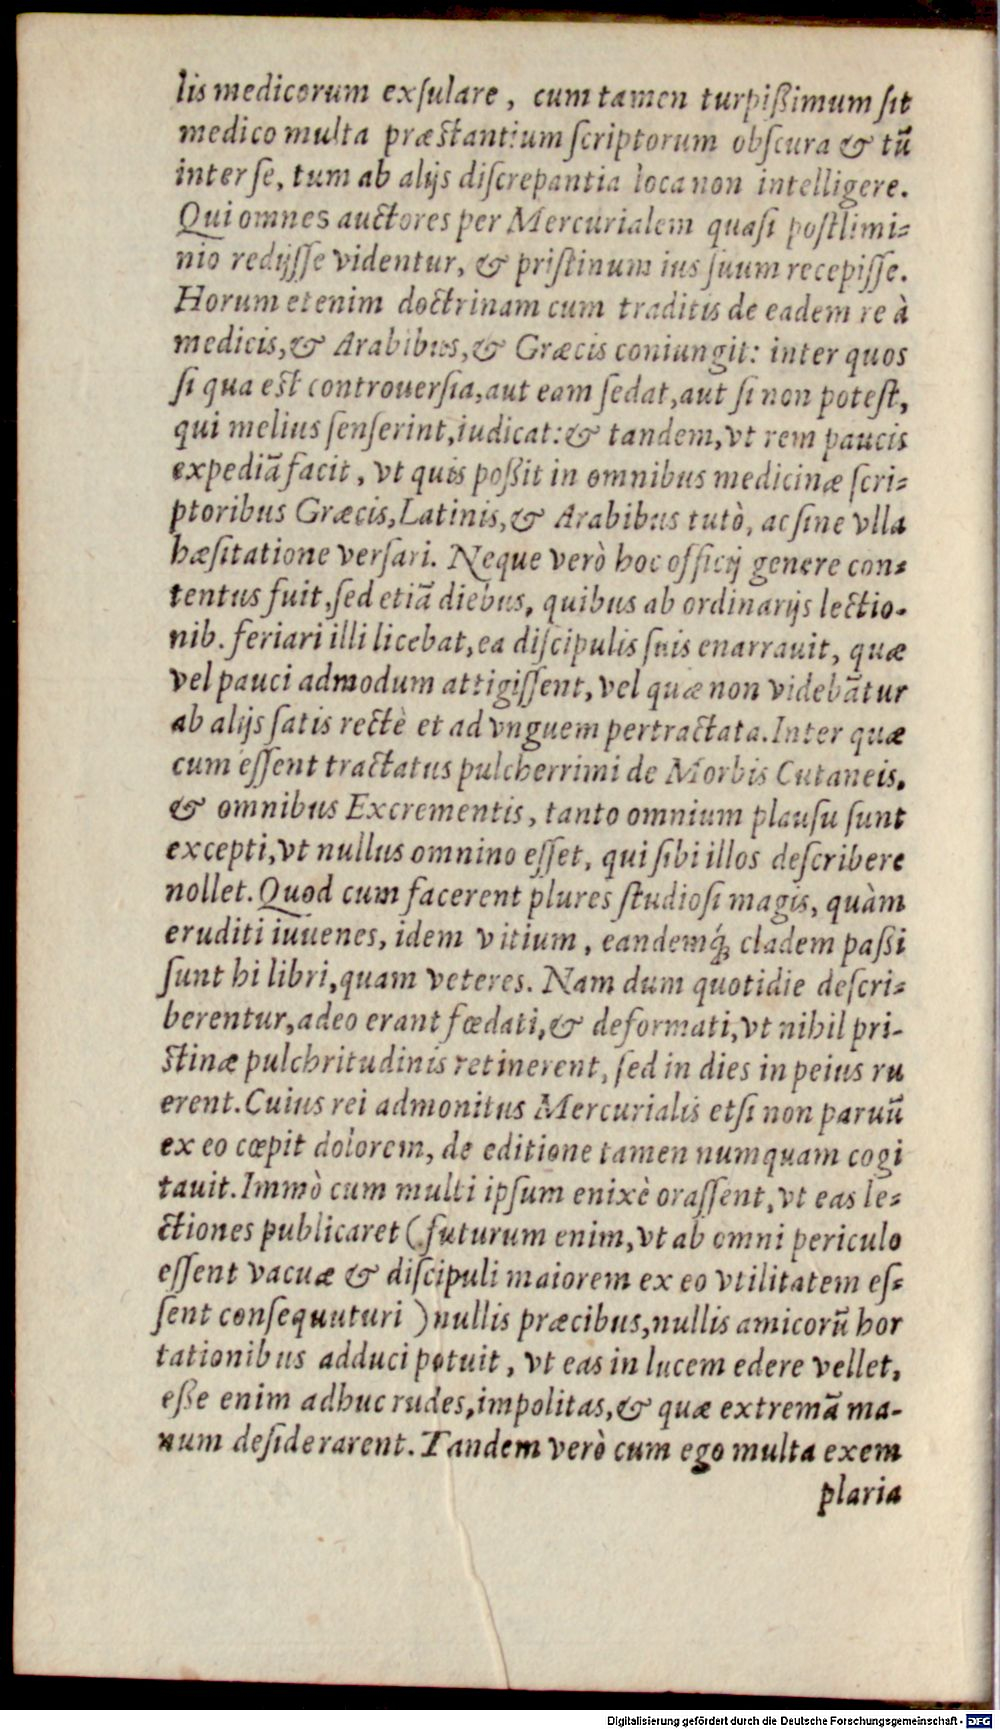 lis medicorum exſulare, cum tamen turpißimum ſit
medico multa præſtantium ſcriptorum obſcura & tũ
inter ſe, tum ab alijs diſcrepantia loca non intelligere.
Qui omnes auctores per Mercurialem quaſi poſtlimi-
nio redijſſe videntur, & priſtinum ius ſuum recepiſſe.
Horum etenim doctrinam cum traditis de eadem re à
medicis, & Arabibus, & Græcis coniungit: inter quos
ſi qua eſt controuerſia, aut eam ſedat, aut ſi non poteſt,
qui melius ſenſerint, iudicat: & tandem, vt rem paucis
expediã facit, vt quis poßit in omnibus medicinæ ſcri-
ptoribus Græcis, Latinis, & Arabibus tutò, ac ſine vlla
hæſitatione verſari. Neque verò hoc officij genere con-
tentus fuit, ſed etiã diebus, quibus ab ordinarijs lectio-
nib. feriari illi licebat, ea diſcipulis ſuis enarrauit, quæ
vel pauci admodum attigiſſent, vel quæ non videbãtur
ab alijs ſatis rectè et ad vnguem pertractata. Inter quæ
cum eſſent tractatus pulcherrimi de Morbis Cutaneis,
& omnibus Excrementis, tanto omnium plauſu ſunt
excepti, vt nullus omnino eſſet, qui ſibi illos deſcribere
nollet. Quod cum facerent plures ſtudioſi magis, quàm
eruditi iuuenes, idem vitium, eandemq́; cladem paßi
ſunt hi libri, quam veteres. Nam dum quotidie deſcri-
berentur, adeo erant fœdati, & deformati, vt nihil pri-
ſtinæ pulchritudinis retinerent, ſed in dies in peius ru
erent. Cuius rei admonitus Mercurialis etſi non paruũ
ex eo cœpit dolorem, de editione tamen numquam cogi
tauit. Immò cum multi ipſum enixè oraſſent, vt eas le-
ctiones publicaret (futurum enim, vt ab omni periculo
eſſent vacuæ & diſcipuli maiorem ex eo vtilitatem eſ-
ſent conſequuturi) nullis præcibus, nullis amicorũ hor
tationibus adduci potuit, vt eas in lucem edere vellet,
eße enim adhuc rudes, impolitas, & quæ extremã ma-
num deſiderarent. Tandem verò cum ego multa exem
plaria
Digitalisierung gefördert durch die Deutsche Forschungsgemeinschaft - DFG